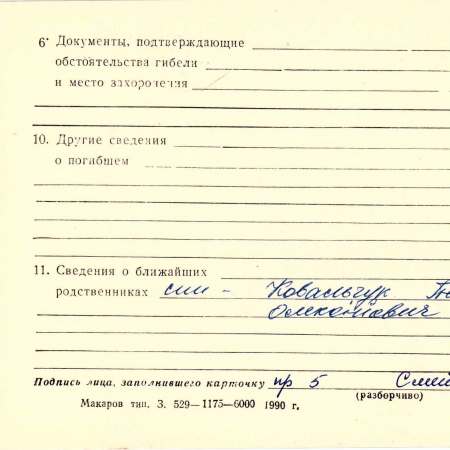 6· Документы, подтверждающие
обстоятельства гибели
и место захоронения
10. Другие сведения
о погибшем
11. Сведения о ближайших
родственниках син - Ковальчук
Подпись лица, заполнившего карточку пр 5
(разборчиво)
Макаров тип. З. 529—1175—6000 1990 г.